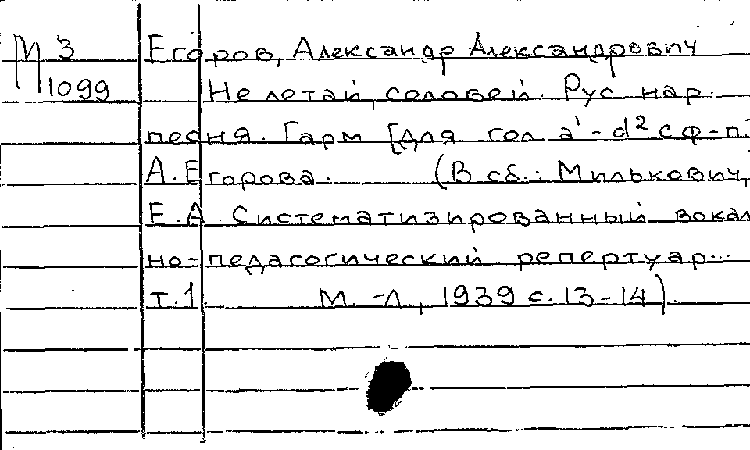 М 3 Егоров, Александр Александрович
1099 Не летай, соловей. Рус нар.
песня. Гарм [для гол a¹-d² с ф-п.
А. Егорова. (В сб.: Милькович,
Е.А. Систематизированный вокаль
но-педагогический репертуар...
т.1 М.-Л., 1939 с. 13-14).